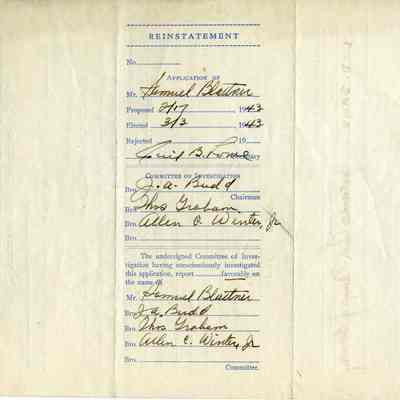 REINSTATEMENT
No.
APPLICATION OF
Mr. Hemuel Blattner
Proposed 2/17 1943
Elected 3/3 1943
Rejected 19
B. Rowe
COMMITTEE OF INVESTIGATION
Bro. J. A. Budd
Chairman
Bro. Thos Graham
Bro. Allen C. Winter, Jr
Bro.
The undersigned Committee of Inves-
tigation having conscientiously investigated
this application, report favorably on
the name of
Mr. Hemuel Blattner
Bro. J. A. Budd
Bro. Thos Graham
Bro. Allen C. Winter, Jr
Bro.
Committee.